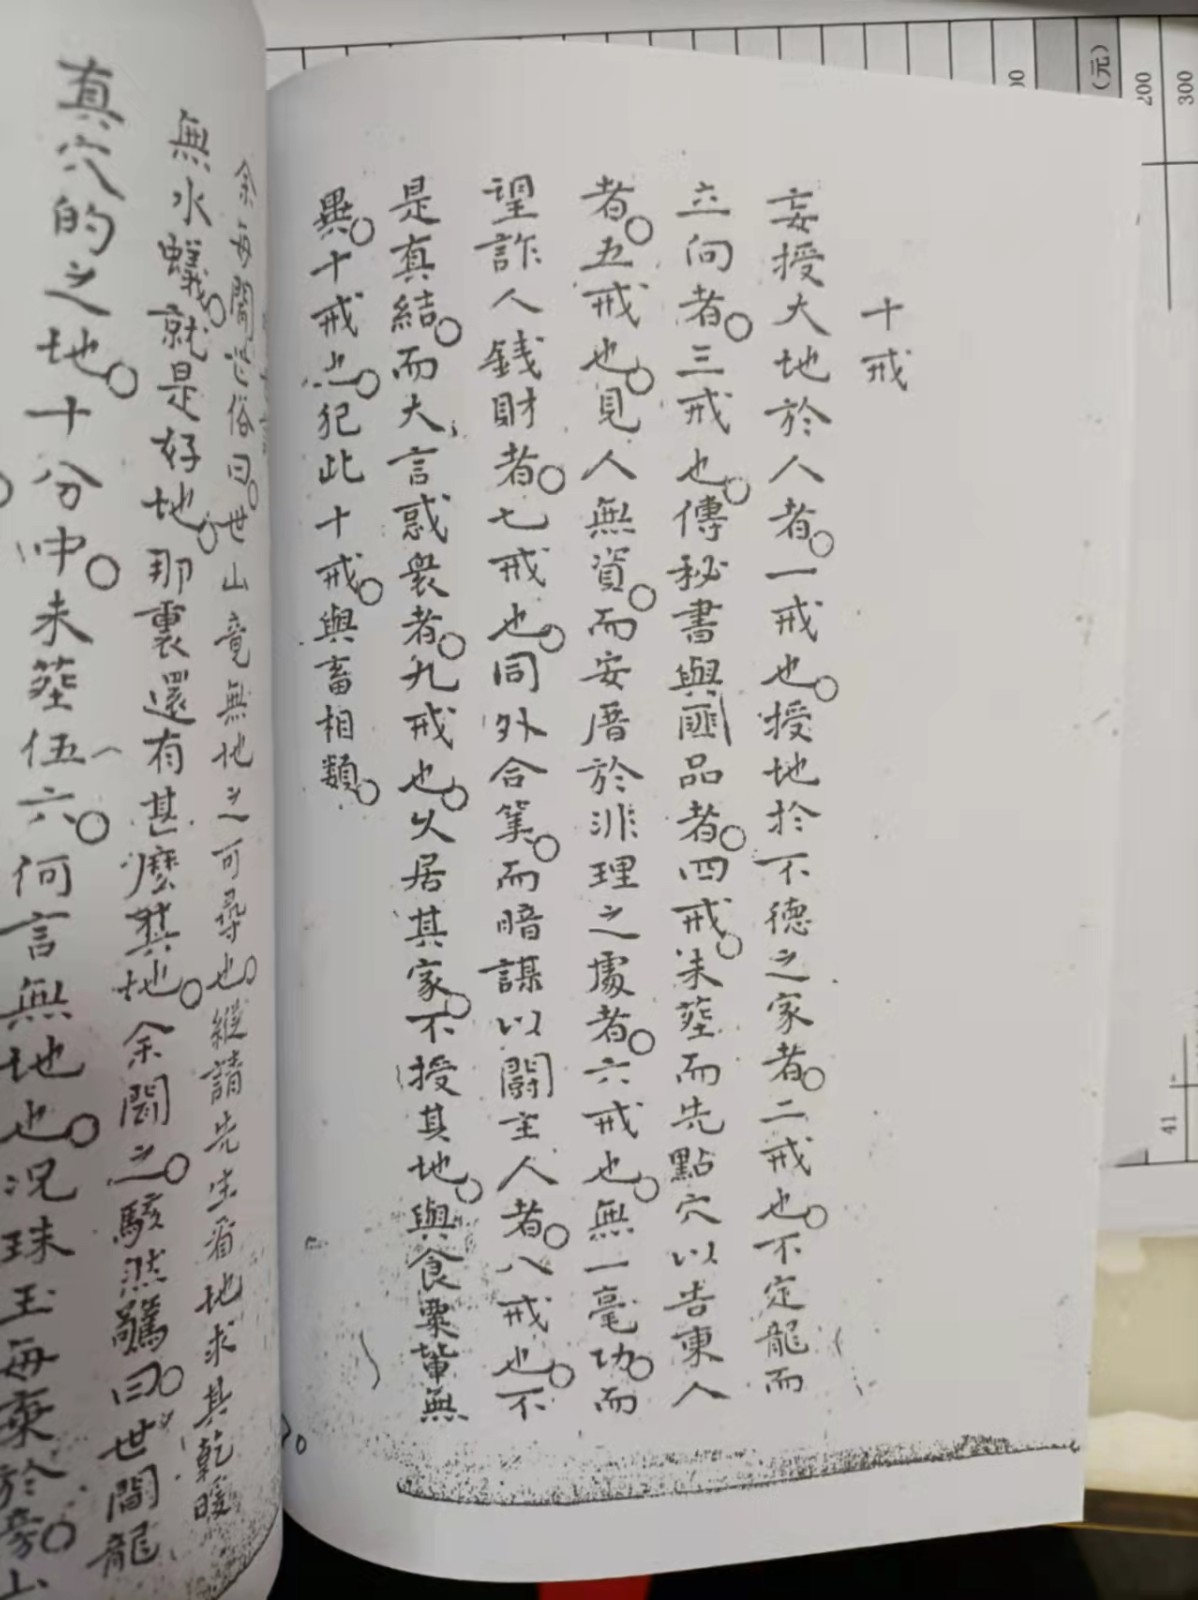 十戒
妄授大地於人者。一戒也。授地於不德之家者。二戒也。不定龍而
立向者。三戒也。傳秘書與匪品者。四戒。未塟而先點穴以告東人
者。五戒也。見人無資。而安厝於非理之處者。六戒也。無一毫功。而
望詐人錢財者。七戒也。同外合笑。而暗謀以鬪主人者。八戒也。不
是真結。而大言惑衆者。九戒也。久居其家。不授其地。與食粟輩無
異。十戒也。犯此十戒。與畜相類。
余每聞世俗曰。世山竟無地之可尋也。縱請先生看地求其乾暖
無水蟻。就是好地。那裏還有甚麼真地。余聞之。駭然驚曰。世間龍
真穴的之地。十分中。未塟伍六。何言無地也。况珠玉每棄於
200
300
(元)
41